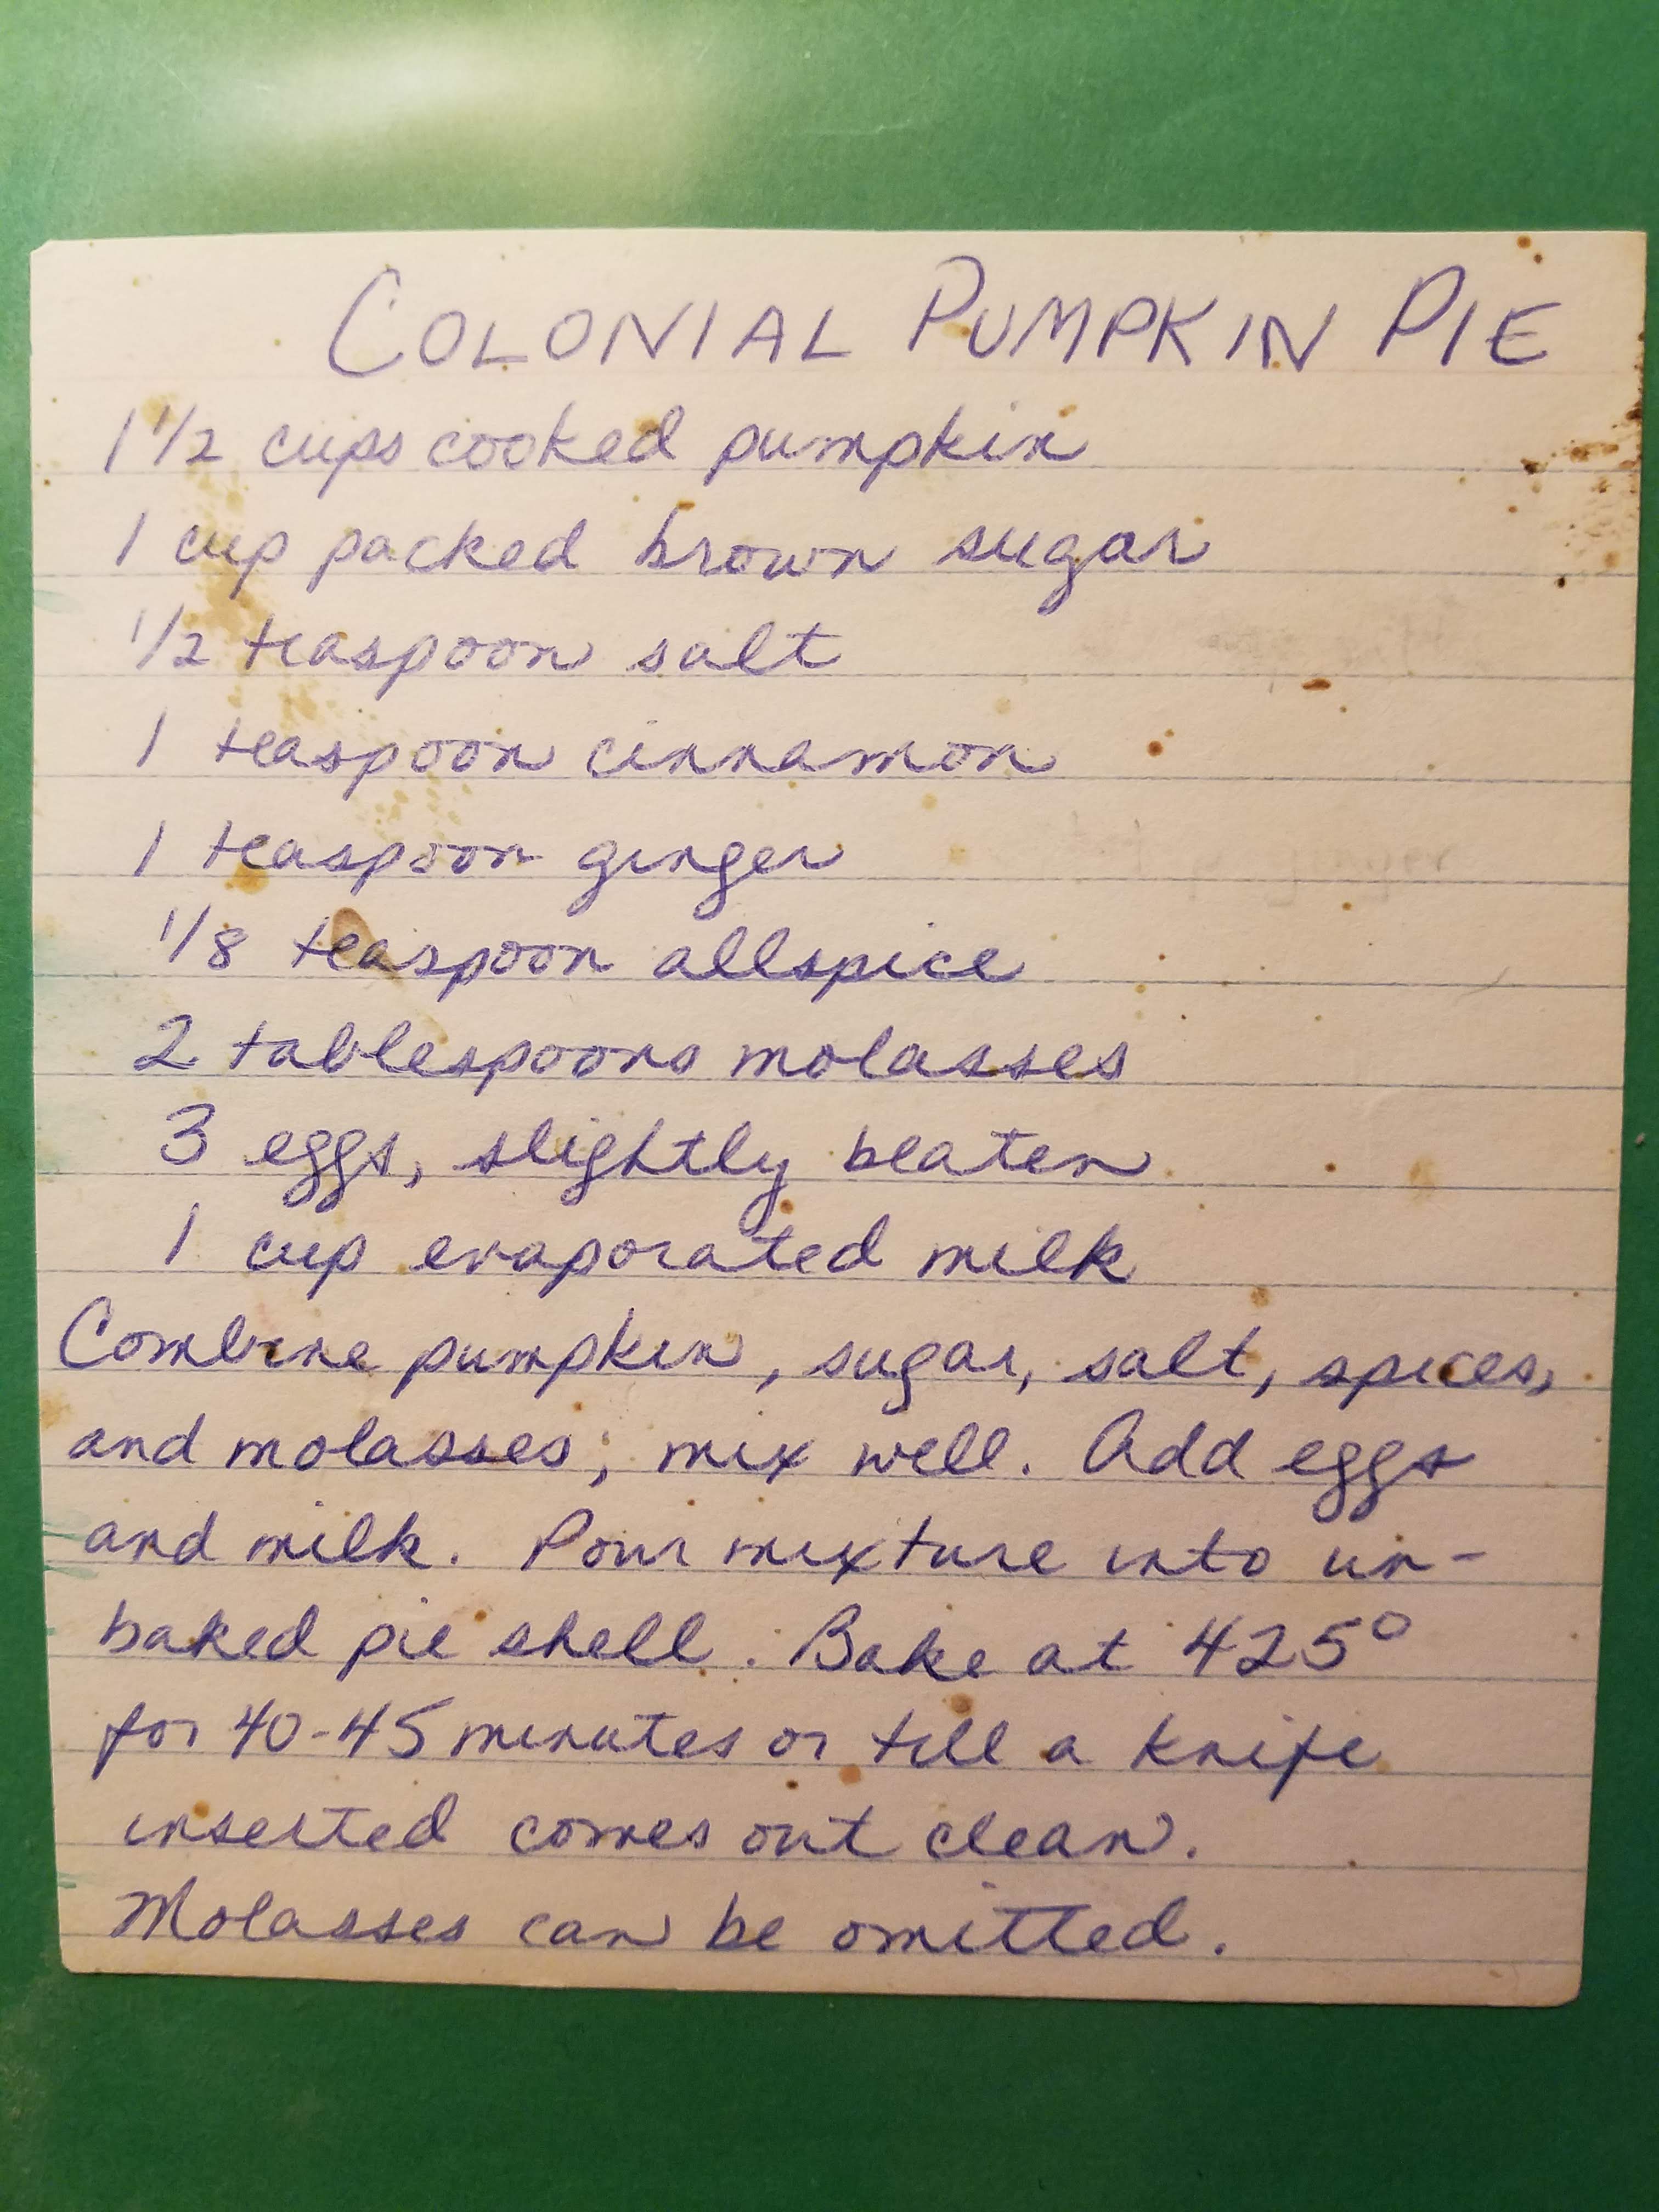 COLONIAL PUMPKIN PIE
1 1/2 cups cooked pumpkin
1 cup packed brown sugar
1/2 teaspoon salt
1 teaspoon cinnamon
1 teaspoon ginger
1/8 teaspoon allspice
2 tablespoons molasses
3 eggs, slightly beaten
1 cup evaporated milk
Combine pumpkin, sugar, salt, spices,
and molasses; mix well. Add eggs
and milk. Pour mixture into un-
baked pie shell. Bake at 425°
for 40-45 minutes or till a knife
inserted comes out clean.
Molasses can be omitted.